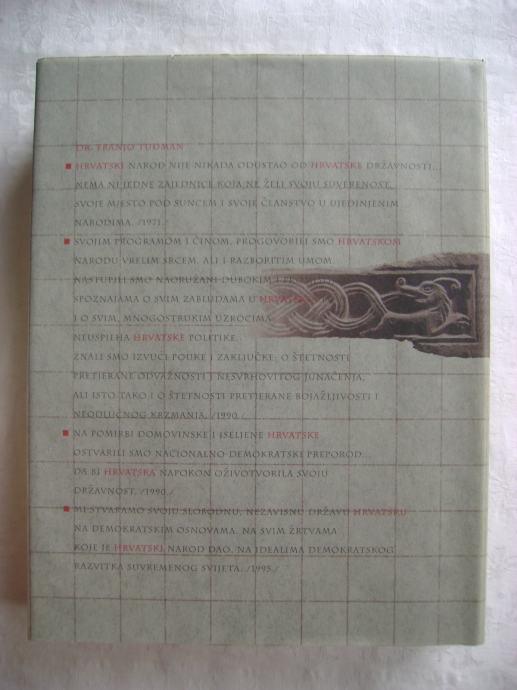 DR. FRANJO TUĐMAN
HRVATSKI NAROD NIJE NIKADA ODUSTAO OD HRVATSKE DRŽAVNOSTI...
NEMA NI JEDNE ZAJEDNICE KOJA NE ŽELI SVOJU SUVERENOST,
SVOJE MJESTO POD SUNCEM I SVOJE ČLANSTVO U UJEDINJENIM
NARODIMA. /1971./
SVOJIM PROGRAMOM I ČINOM, PROGOVORILI SMO HRVATSKOM
NARODU VRELIM SRCEM, ALI I RAZBORITIM UMOM.
NASTUPILI SMO NAORUŽANI DUBOKIM I
SPOZNAJAMA O SVIM ZABLUDAMA U
I O SVIM, MNOGOSTRUKIM UZROCIMA
NEUSPIJEHA HRVATSKE POLITIKE.
ZNALI SMO IZVUĆI POUKE I ZAKLJUČKE, O ŠTETNOSTI
PRETJERANE ODVAŽNOSTI I NESVRHOVITOG JUNAČENJA,
ALI ISTO TAKO I O ŠTETNOSTI PRETJERANE BOJAŽLJIVOSTI I
NEODLUČNOG KRZMANJA. /1990./
NA POMIRBI DOMOVINSKE I ISELJENE HRVATSKE
OSTVARILI SMO NACIONALNO-DEMOKRATSKI PREPOROD...
DA BI HRVATSKA NAPOKON OŽIVOTVORILA SVOJU
DRŽAVNOST. /1990./
MI STVARAMO SVOJU SLOBODNU, NEZAVISNU DRŽAVU HRVATSKU
NA DEMOKRATSKIM OSNOVAMA, NA SVIM ŽRTVAMA
KOJE JE HRVATSKI NAROD DAO, NA IDEALIMA DEMOKRATSKOG
RAZVITKA SUVREMENOG SVIJETA. /1995./